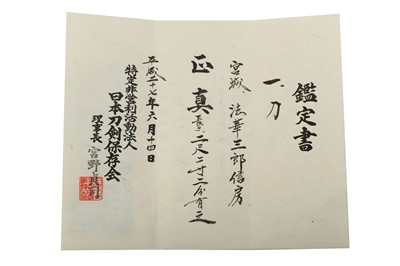 鑑定書
一、刀
宮城 法華三郎信房
正真 長さ二尺二寸二分有之
平成二十七年六月十四日
特定非営利活動法人
日本刀剣保存会
理事長 宮野